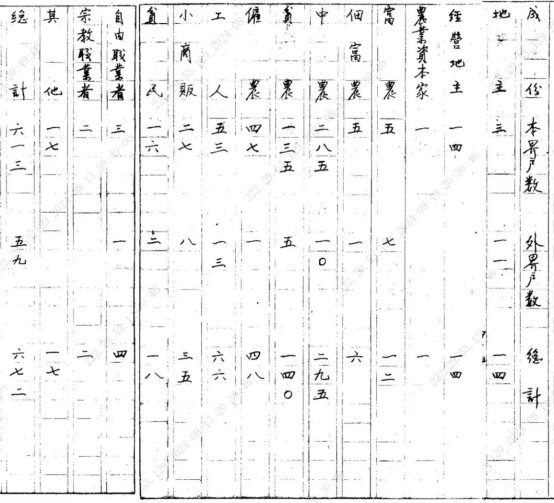 成份 本界戶數 外界戶數 總計
地主 三 一一 一四
經營地主 一四 一四
農業資本家 一 一
富農 五 七 一二
佃富農 五 一 六
中農 二八五 一〇 二九五
貧農 一三五 五 一四〇
僱農 四七 一 四八
工人 五三 一三 六六
小商販 二七 八 三五
貧民 一六 二 一八
自由職業者 三 一 四
宗教職業者 二 二
其他 一七 一七
總計 六一三 五九 六七二